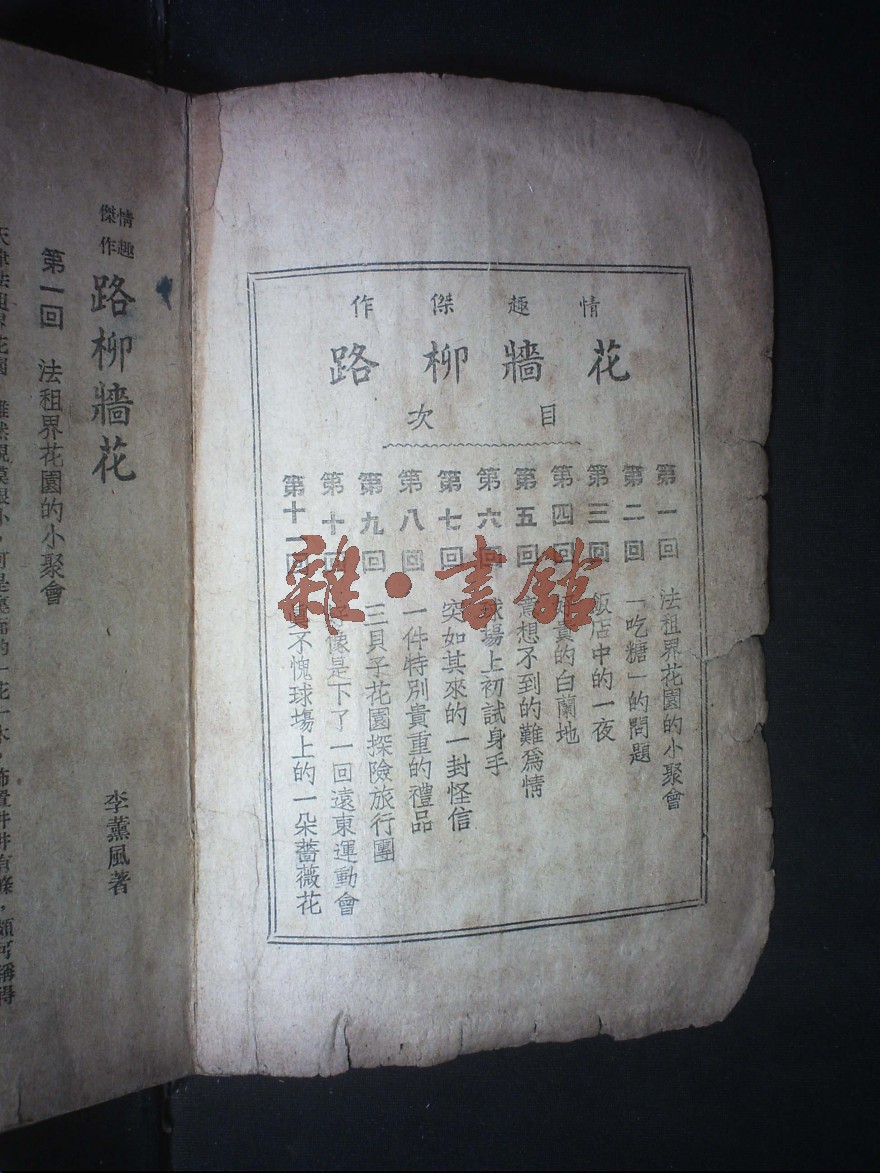 情趣傑作
路柳牆花
目次
第一回 法租界花園的小聚會
第二回 「吃糖」的問題
第三回 飯店中的一夜
第四回 好貴的白蘭地
第五回 意想不到的難爲情
第六回 球場上初試身手
第七回 突如其來的一封怪信
第八回 一件特別貴重的禮品
第九回 三貝子花園探險旅行團
第十回 好像是下了一回遠東運動會
第十一回 真不愧球塲上的一朵薔薇花
雜·書館
情趣
傑作
路柳牆花 李薰風著
第一回 法租界花園的小聚會
花園,雖然規模很小,可是裏面的一花一木,佈置井井有條,頗可稱得